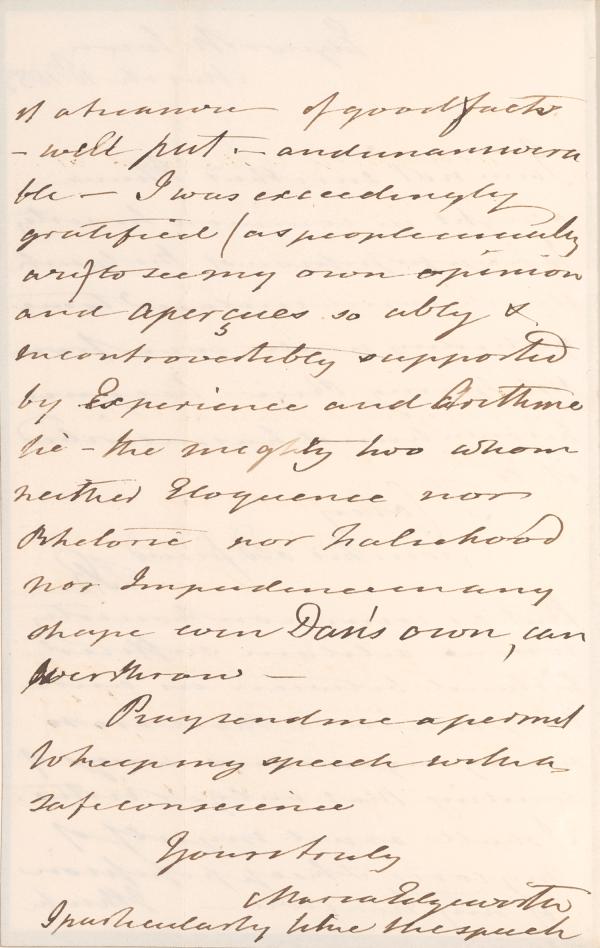 of a treasure of good facts
– well put – and unanswera
ble – I was exceedingly
gratified (as people usually
are) to see my own opinion
and aperçues so ably &
incontrovertibly supported
by Experience and Arithme
tic – the mighty two whom
neither Eloquence nor
Rhetoric nor Falsehood
nor Impudence in any
shape even Dan's own, can
overthrow –
Pray send me a permit
to keep my speech with a
safe conscience
Yours truly
Maria Edgeworth
I particularly like the speech